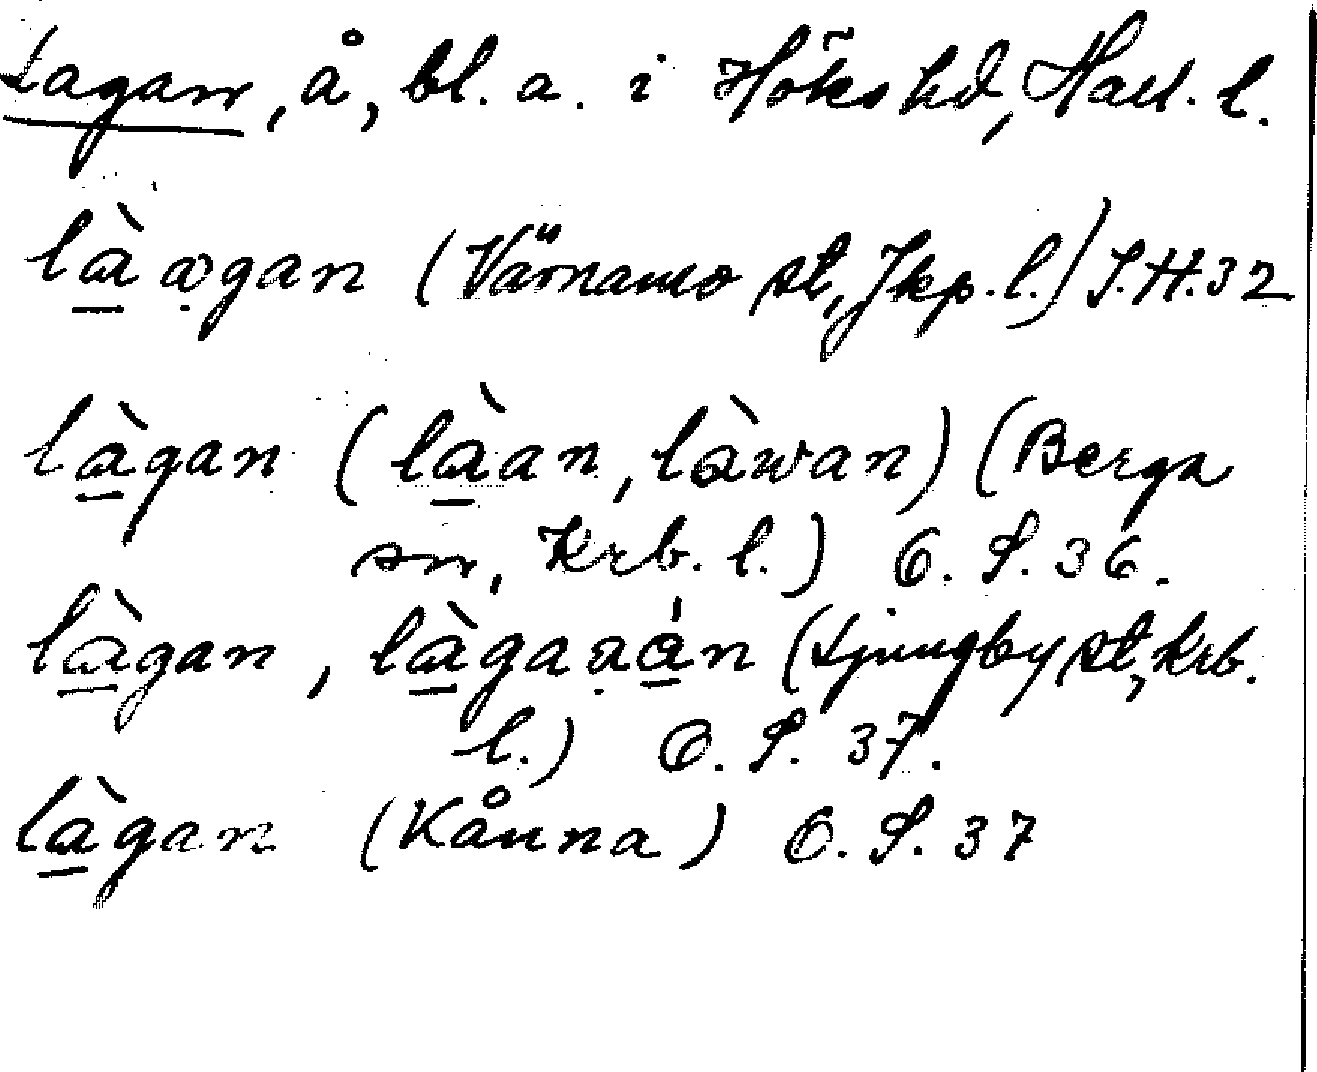 Lagan, å, bl. a. i Höks hd, Hall. l.
là̱ạgan (Värnamo st, Jkp. l.) S.H.32
là̱gan (là̱an, làwan) (Berga
sn, Krb. l.) O. S. 36.
là̱gan, là̱gaạá̱n (Ljungby st, Krb.
l.) O. S. 37.
là̱gan (Kånna) O. S. 37